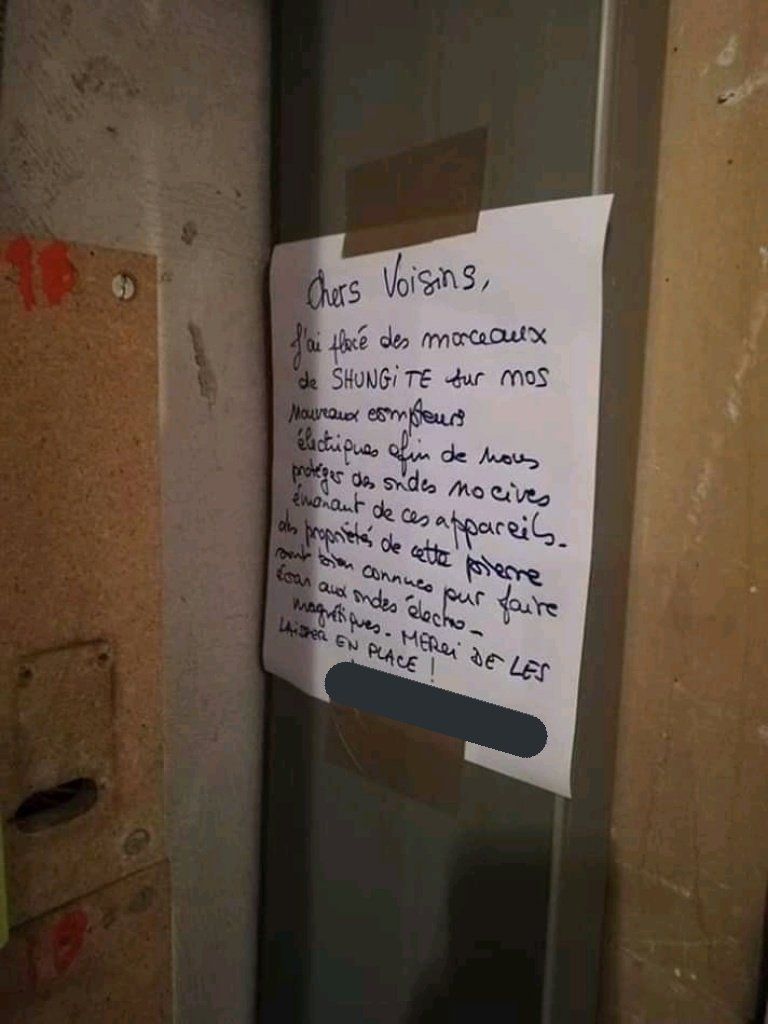 18
Chers Voisins,
J'ai placé des morceaux
de SHUNGiTE sur nos
nouveaux compteurs
électriques afin de nous
protéger des ondes nocives
émanant de ces appareils.
Les propriétés de cette pierre
sont bien connues pour faire
écran aux ondes électro-
magnétiques. MERCi DE LES
LAISSER EN PLACE !